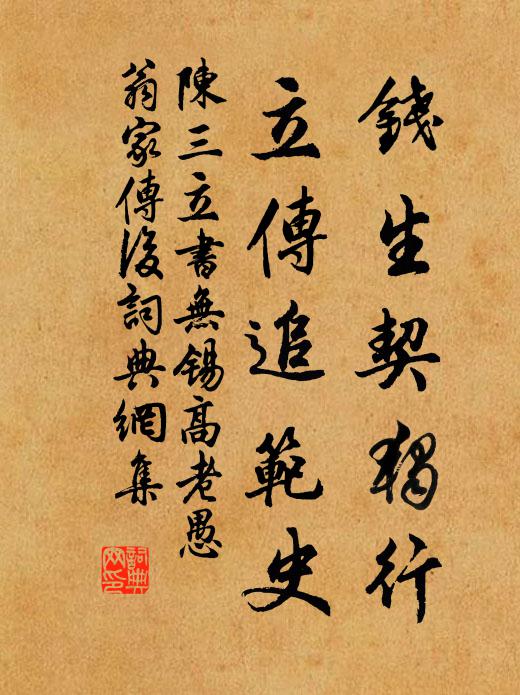 錢生契獨行
立傳追範史
陳三立書無錫高老愚
翁家傳後詞典網集
詞典網印